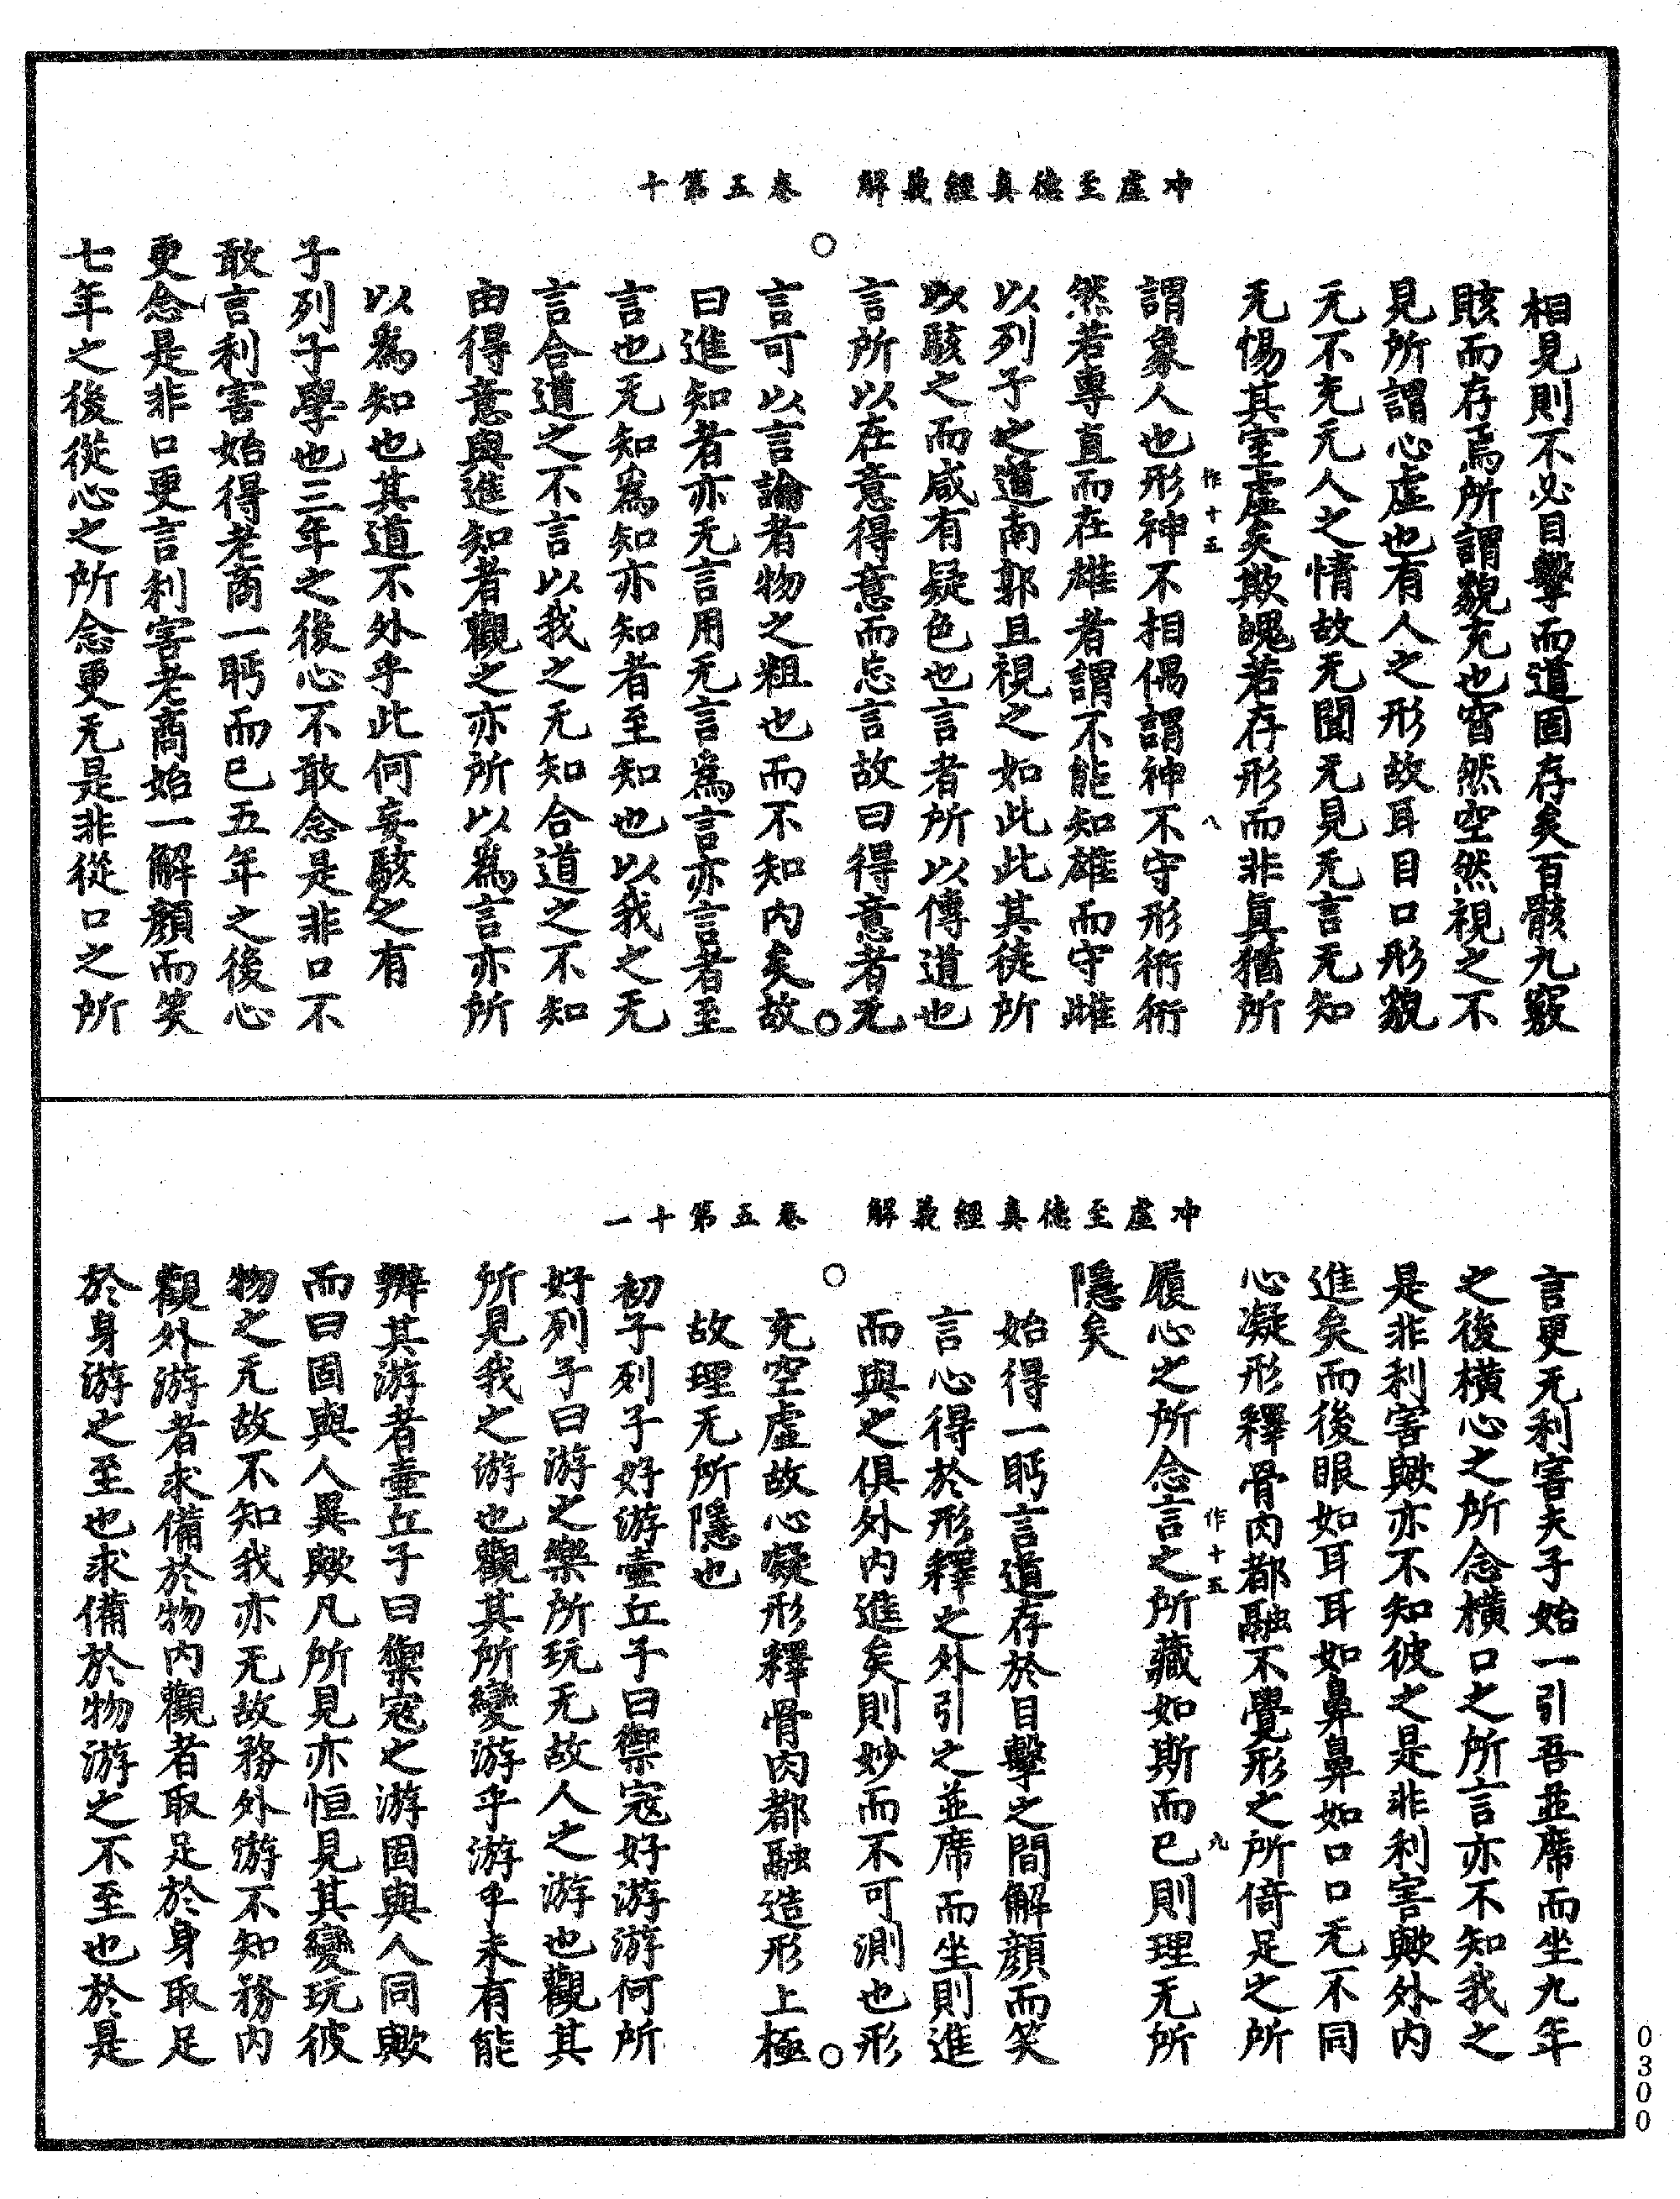 冲虛至德真經義解　卷五第十
相見則不必目擊而道固存矣百骸九竅
賅而存焉所謂貌充也窅然空然視之不
見所謂心虛也有人之形故耳目口形貌
无不充无人之情故无聞无見无言无知
无惕其室虛矣欺魄若存形而非真猶所
作十五　八
謂象人也形神不相偶謂神不守形衎衎
然若專直而在雄者謂不能知雄而守雌
以列子之道南郭且視之如此此其徒所
以駭之而咸有疑色也言者所以傳道也
言所以在意得意而忘言故曰得意者无
言可以言論者物之粗也而不知內矣故
曰進知者亦无言用无言為言亦言者至
言也无知為知亦知者至知也以我之无
言合道之不言以我之无知合道之不知
由得意與進知者觀之亦所以為言亦所
以為知也其道不外乎此何妄駭之有
子列子學也三年之後心不敢念是非口不
敢言利害始得老商一眄而已五年之後心
更念是非口更言利害老商始一解顏而笑
七年之後從心之所念更无是非從口之所
冲虛至德真經義解　卷五第十一
言更无利害夫子始一引吾並席而坐九年
之後橫心之所念橫口之所言亦不知我之
是非利害歟亦不知彼之是非利害歟外內
進矣而後眼如耳耳如鼻鼻如口口无不同
心凝形釋骨肉都融不覺形之所倚足之所
作十五　九
履心之所念言之所藏如斯而已則理无所
隱矣
始得一眄言道存於目擊之間解顏而笑
言心得於形釋之外引之並席而坐則進
而與之俱外內進矣則妙而不可測也形
充空虛故心凝形釋骨肉都融造形上極
故理无所隱也
初子列子好游壺丘子曰禦寇好游游何所
好列子曰游之樂所玩无故人之游也觀其
所見我之游也觀其所變游乎游乎未有能
辨其游者壺丘子曰禦寇之游固與人同歟
而曰固與人異歟凡所見亦恒見其變玩彼
物之无故不知我亦无故務外游不知務內
觀外游者求備於物內觀者取足於身取足
於身游之至也求備於物游之不至也於是
0300